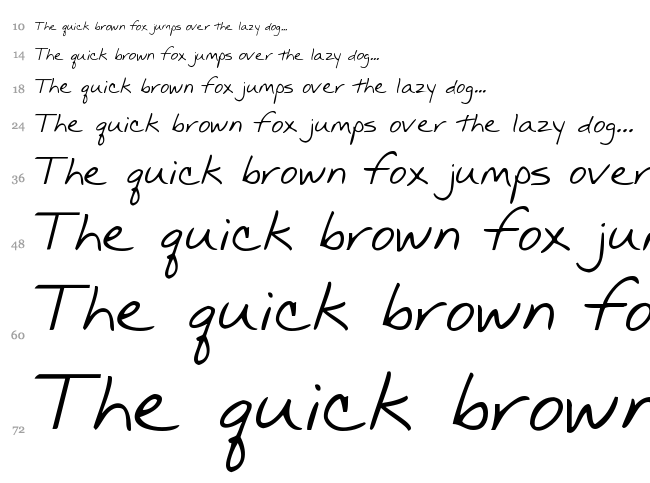 10 The quick brown fox jumps over the lazy dog...
14 The quick brown fox jumps over the lazy dog...
18 The quick brown fox jumps over the lazy dog...
24 The quick brown fox jumps over the lazy dog...
36 The quick brown fox jumps over
48 The quick brown fox jun
60 The quick brown fo
72 The quick brown